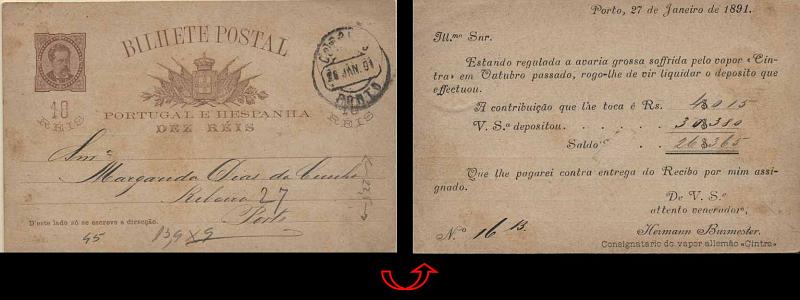 BILHETE POSTAL
10
REIS
10
REIS
PORTUGAL E HESPANHA
DEZ RÉIS
28 JAN. 91
PORTO
Margarida Dias da Cunha
Ribeira 27
Porto
D'este lado só se escreve a direcção.
45
Porto, 27 de Janeiro de 1891.
Ill.mo Snr.
Estando regulada a avaria grossa soffrida pelo vapor «Cin-
tra» em Outubro passado, rogo-lhe de vir liquidar o deposito que
effectuou.
A contribuição que lhe toca é Rs. 4$015
V. S.a depositou. . . . . . 30$380
Saldo . . 26$365
Que lhe pagarei contra entrega do Recibo por mim assi-
gnado.
De V. S.a
attento venerador,
N.o 16 B. Hermann Burmester.
Consignatario do vapor allemão «Cintra»